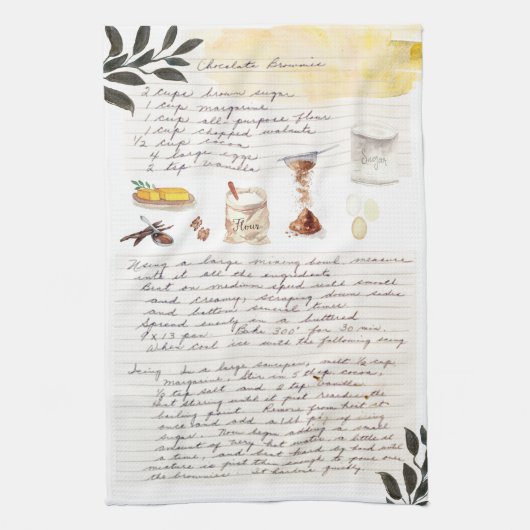 Chocolate Brownies
2 cups brown sugar
1 cup margarine
1 cup all-purpose flour
1 cup chopped walnuts
1/2 cup cocoa
4 large eggs
2 tsp vanilla
Sugar
Flour
Using a large mixing bowl measure
into it all the ingredients
Beat on medium speed until smooth
and creamy, scraping down sides
and bottom several times.
Spread evenly on a buttered
9 x 13 pan. Bake 300° for 30 min.
When cool ice with the following icing
Icing In a large saucepan, melt 1/2 cup
margarine, Stir in 5 tbsp cocoa,
1/8 tsp salt and 2 tsp vanilla
Heat stirring until it just reaches the
boiling point. Remove from heat at
once and add a 1 lb pkg of icing
sugar. Now begin adding a small
amount of very hot water, a little at
a time, and beat hard by hand until
mixture is just thin enough to pour over
the brownies. It hardens quickly.